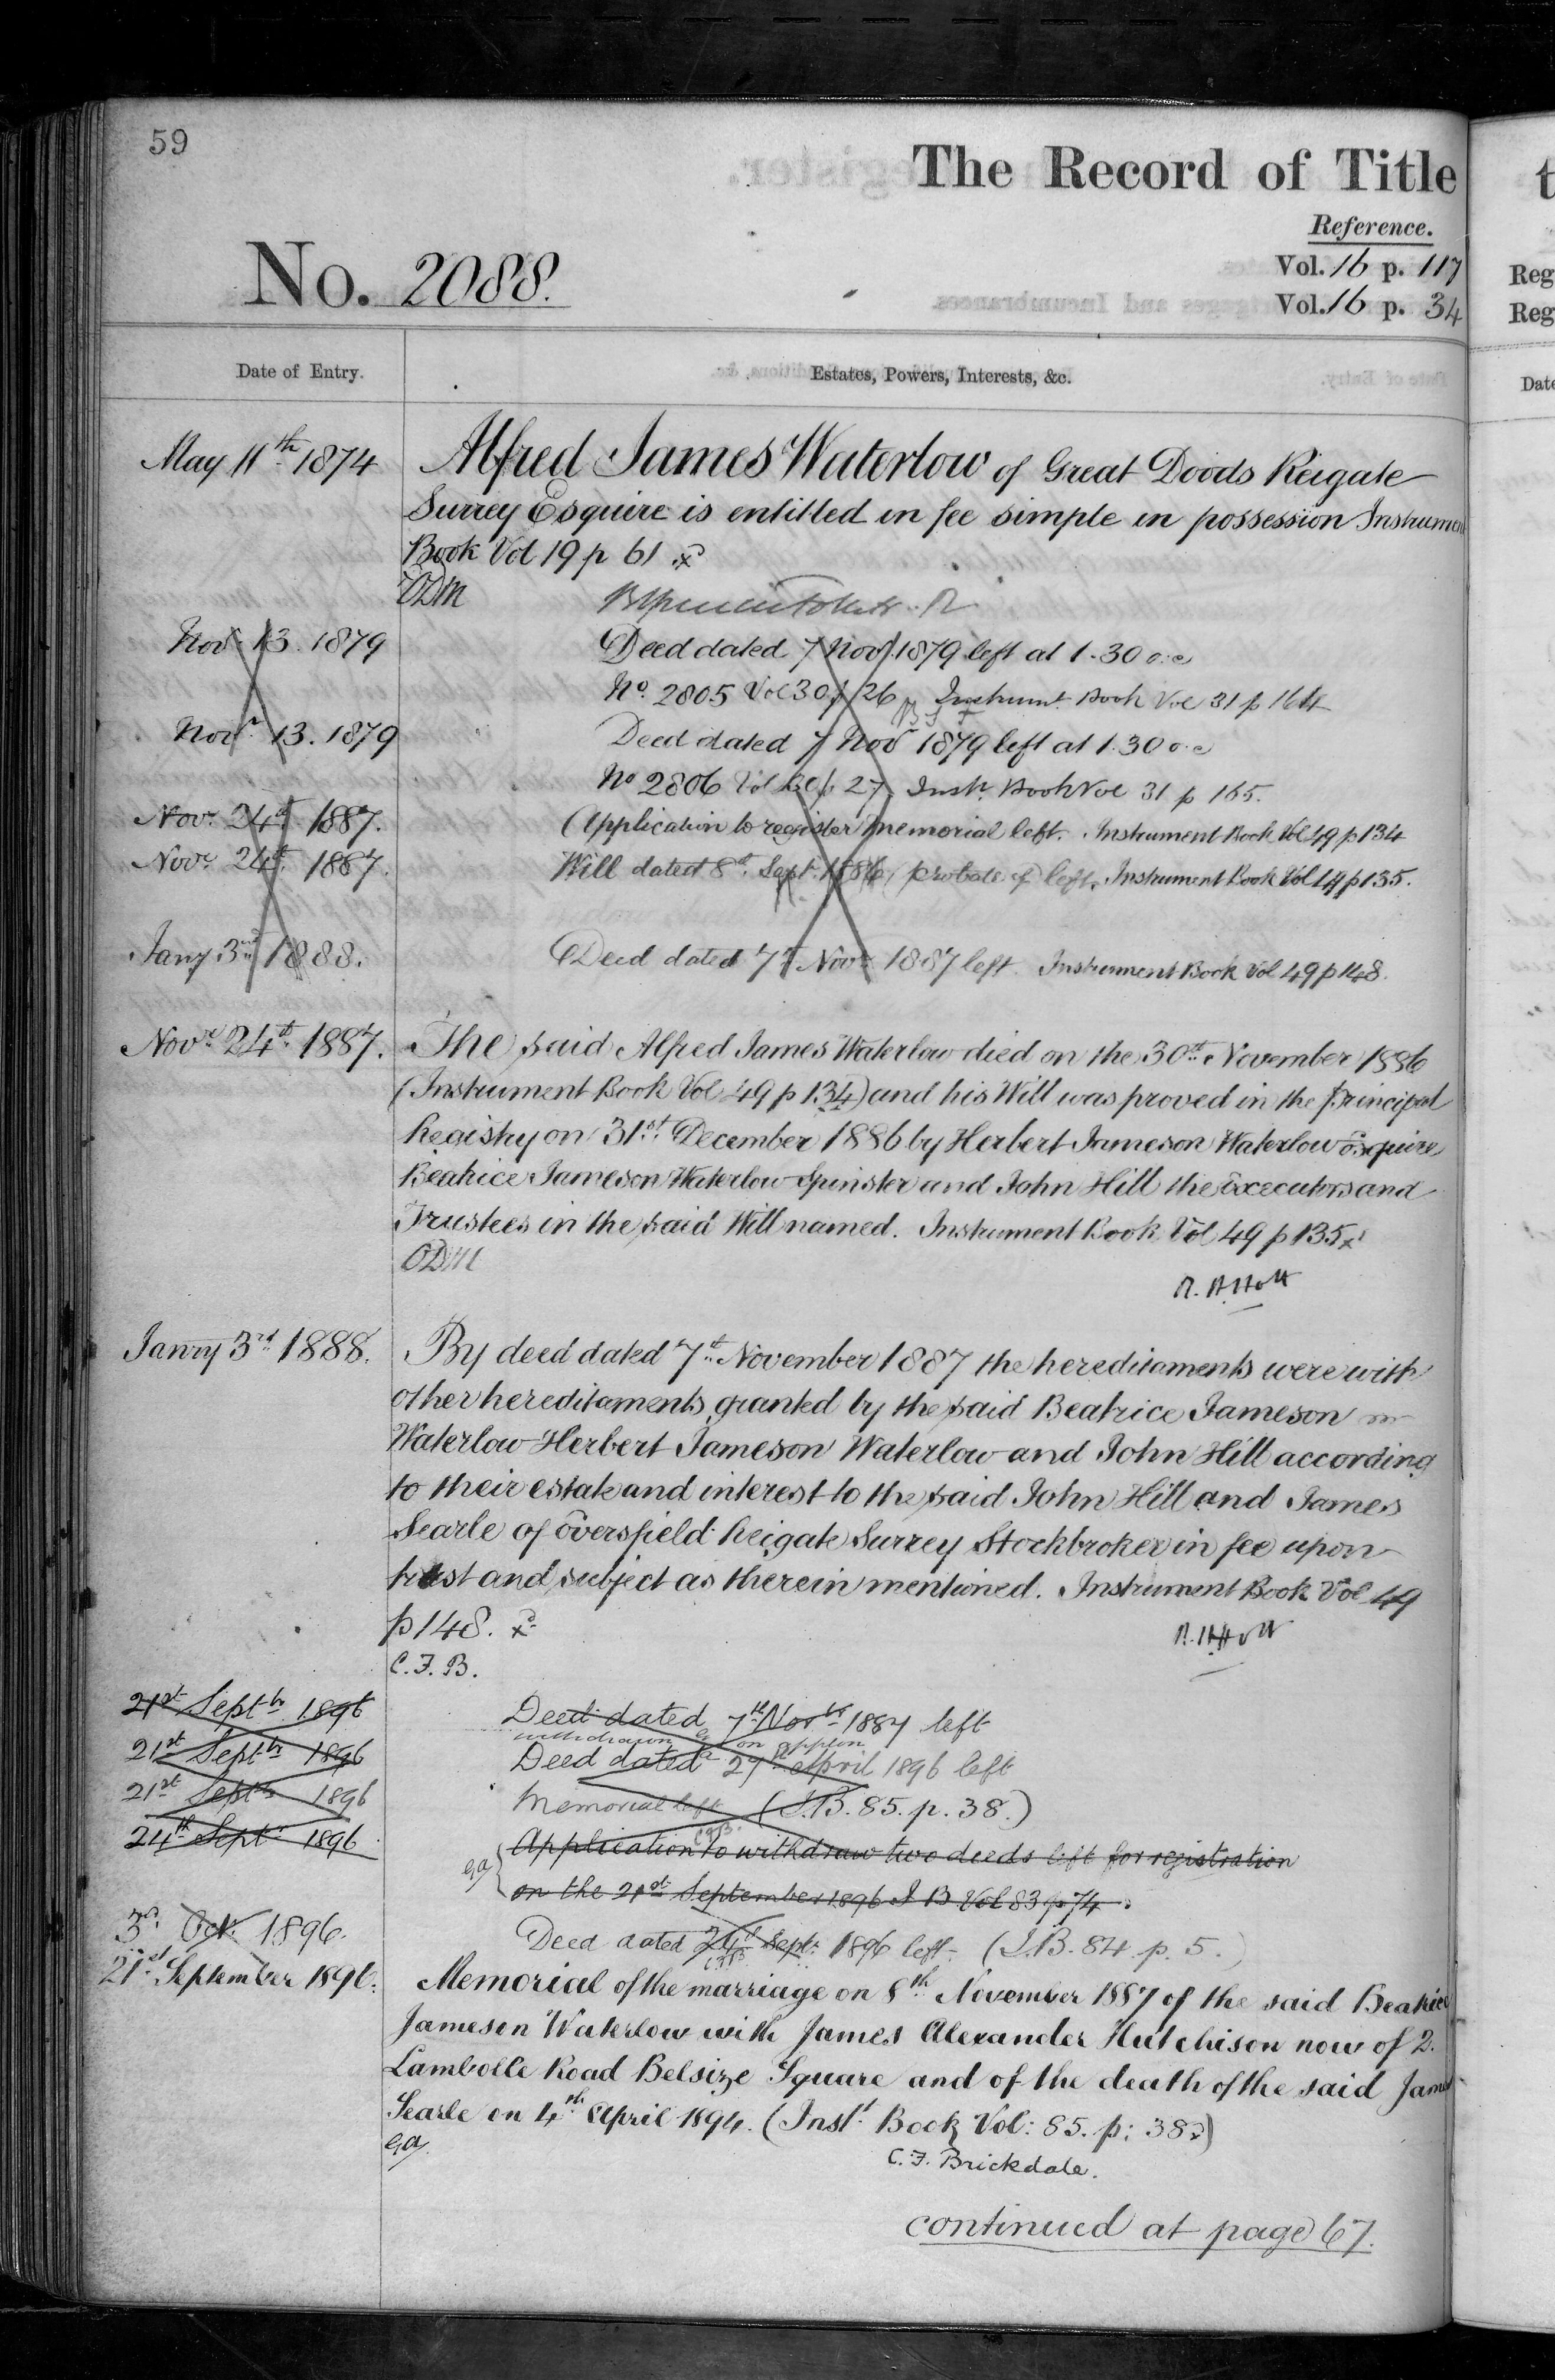 59
The Record of Title
Reference.
No. 2088.
Vol. 16 p. 117
Vol. 16 p. 34
Date of Entry.
Estates, Powers, Interests, &c.
May 11th 1874
Alfred James Waterlow of Great Doods Reigate
Surrey Esquire is entitled in fee simple in possession Instrument
Book Vol 19 p 61
ODM
Nov 13. 1879
Deed dated 7 Novr 1879 left at 1.30 o.c
No. 2805 Vol 30 p 26 Instrumt Book Vol 31 p 164
Novr 13. 1879
Deed dated 7 Novr 1879 left at 1.30 o.c
No 2806 Vol 30 p 27 Instr. Book Vol 31 p 165.
Novr 24th 1887.
Application to register memorial left. Instrument Book Vol 49 p 134
Novr 24th 1887.
Will dated 8th Sept. 1886 (probate of) left. Instrument Book Vol 49 p 135.
Jany 3rd 1888.
Deed dated 7th Novr 1887 left. Instrument Book Vol 49 p 148.
Novr 24th 1887.
The said Alfred James Waterlow died on the 30th November 1886
(Instrument Book Vol 49 p 134) and his Will was proved in the Principal
Registry on 31st December 1886 by Herbert Jameson Waterlow Esquire
Beatrice Jameson Waterlow Spinster and John Hill the Executors and
Trustees in the said Will named. Instrument Book Vol 49 p 135
ODM
R. H. Holt
Janry 3rd 1888.
By deed dated 7th November 1887 the hereditaments were with
other hereditaments granted by the said Beatrice Jameson
Waterlow Herbert Jameson Waterlow and John Hill according
to their estate and interest to the said John Hill and James
Searle of Oversfield Reigate Surrey Stockbroker in fee upon
trust and subject as therein mentioned. Instrument Book Vol 49
p 148.
R. H. Holt
C. F. B.
21st Septbr 1896
Deed dated 7th Novbr 1887 left
withdrawn on applon
21st Septbr 1896
Deed dated 27th April 1896 left
21st Septbr 1896
Memorial left (I.B. 85. p. 38.)
CFB.
24th Septr 1896
Application to withdraw two deeds left for registration
on the 21st September 1896 I B Vol 83 p 74.
3d Oct. 1896.
Deed dated 24th Septr 1896 left. (I.B. 84. p. 5.)
CFB
21st September 1896.
Memorial of the marriage on 8th November 1887 of the said Beatrice
Jameson Waterlow with James Alexander Hutchison now of 2.
Lambolle Road Belsize Square and of the death of the said James
Searle on 4th April 1894. (Inst. Book Vol: 85. p: 38)
C. F. Brickdale.
continued at page 67.